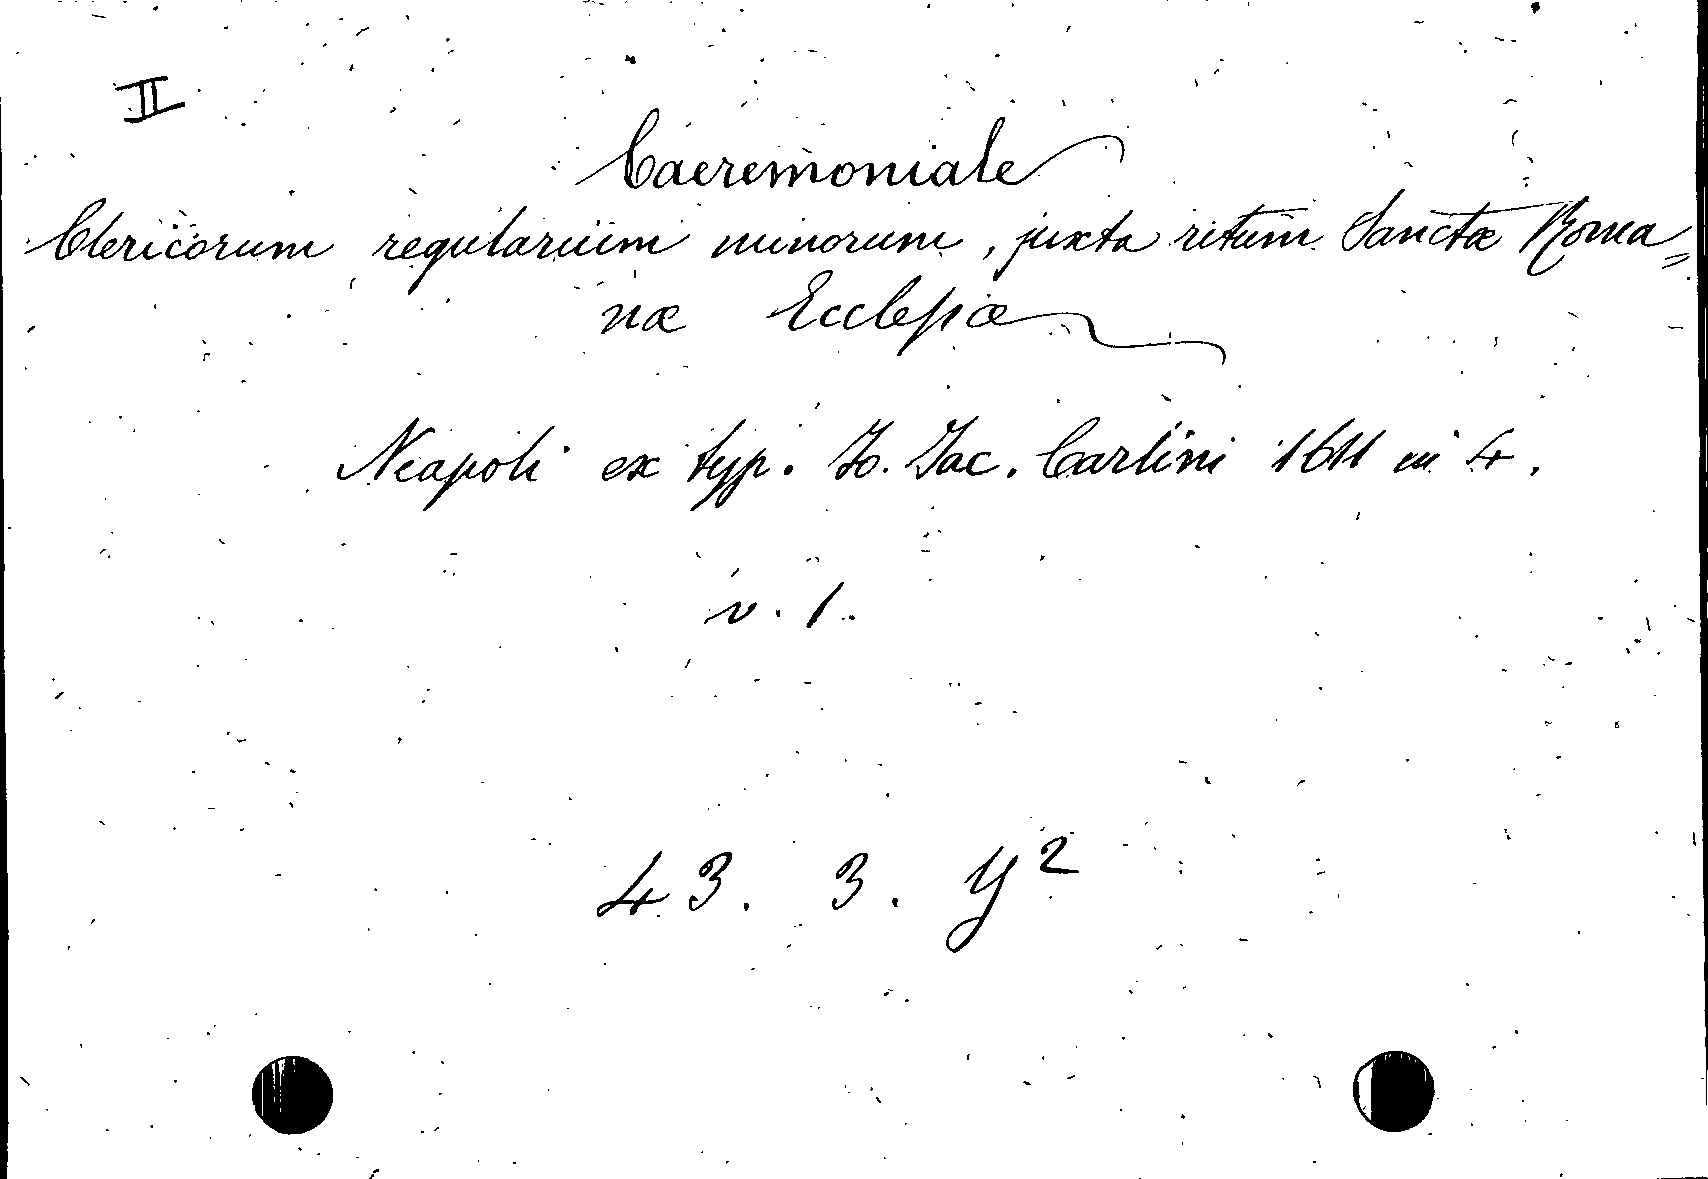 II
Caeremoniale
Clericorum regularium minorum, juxta ritum Sanctæ Roma=
næ Ecclesiæ
Neapoli ex typ. Jo. Jac. Carlini 1611 in 4.
v. 1.
43. 3. Y²